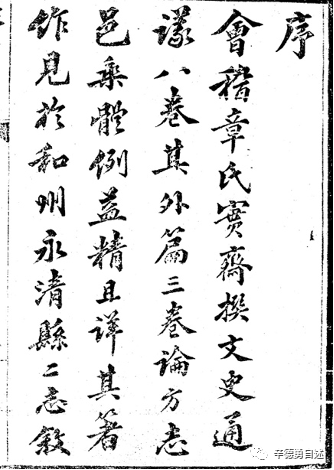 序
會稽章氏實齋撰文史通
議八卷其外篇三卷論方志
邑乘體例益精且詳其著
作見於和州永清縣二志敘
辛德勇自述